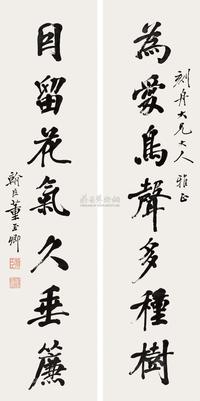 舟大兄大人 雅正
為愛鳥聲多種樹
因留花氣久垂簾
董玉卿